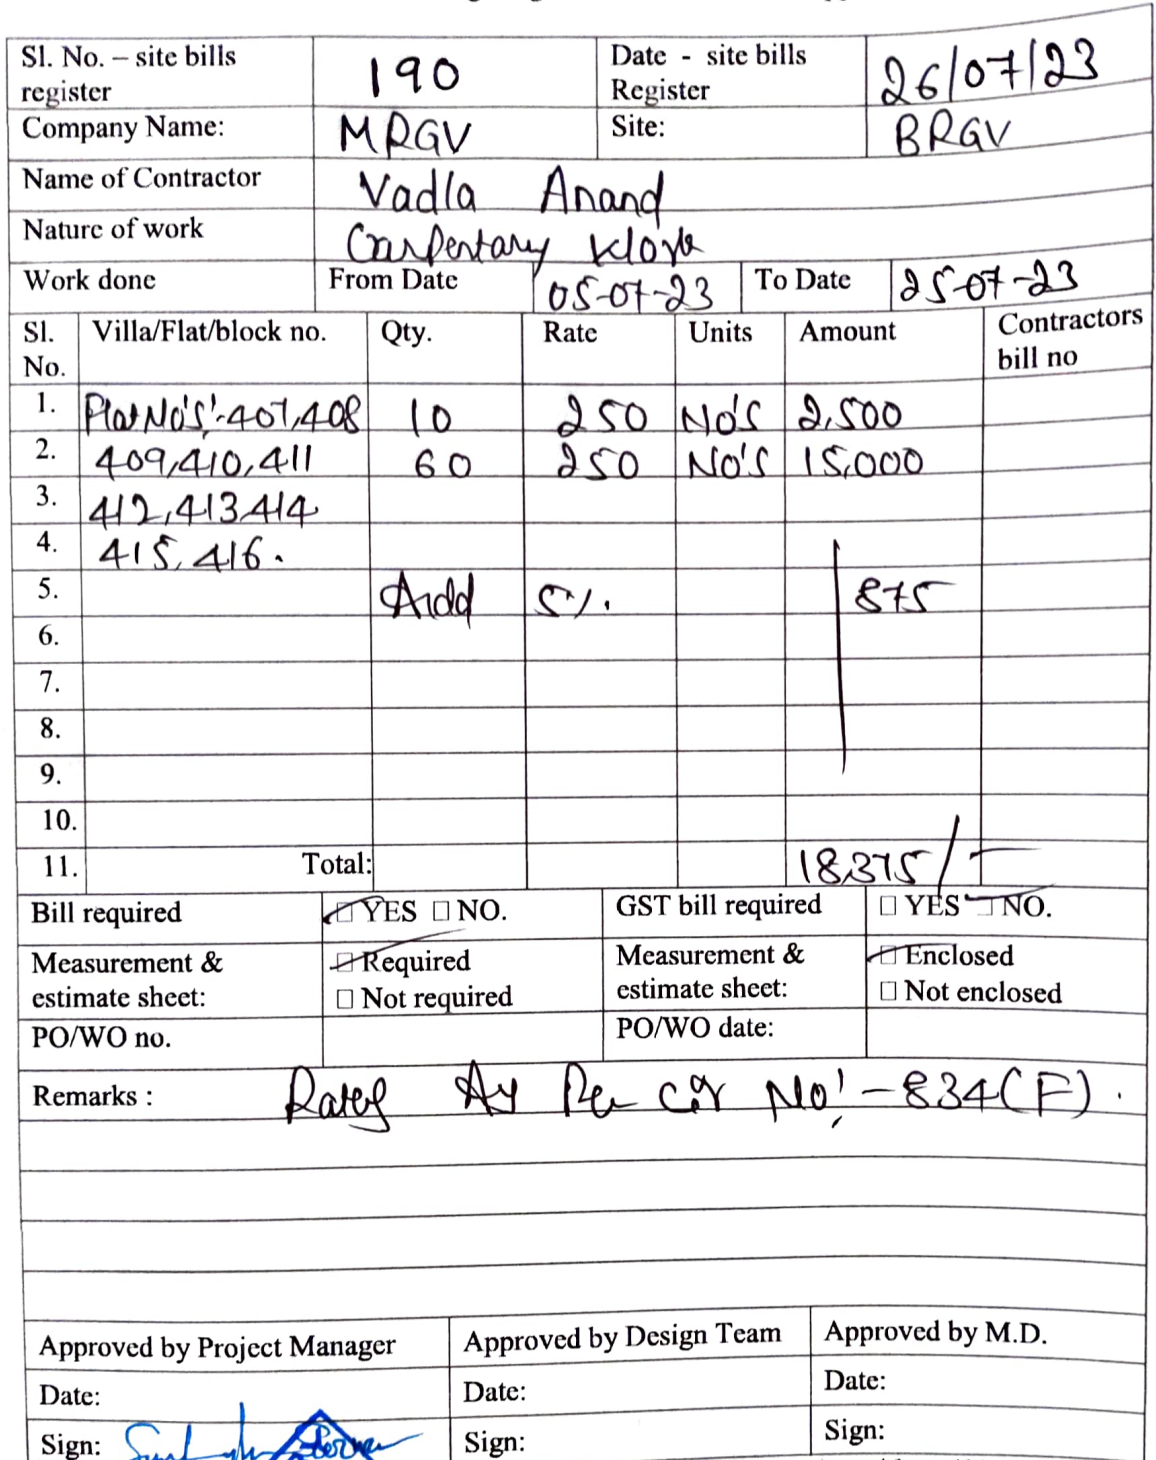 Sl. No. – site bills register 190 Date - site bills Register 26/07/23
Company Name: MRGV Site: BRGV
Name of Contractor Vadla Anand
Nature of work Carpentary Work
Work done From Date 05-07-23 To Date 25-07-23
Sl. No. Villa/Flat/block no. Qty. Rate Units Amount Contractors bill no
1. Flat No's:-407,408 10 250 No's 2,500
2. 409,410,411 60 250 No's 15,000
3. 412,413,414
4. 415, 416.
5. Add 5%. 875
6.
7.
8.
9.
10.
11. Total: 18,375/-
Bill required ☐ YES ☐ NO. GST bill required ☐ YES ☐ NO.
Measurement & estimate sheet: ☐ Required ☐ Not required Measurement & estimate sheet: ☐ Enclosed ☐ Not enclosed
PO/WO no. PO/WO date:
Remarks : Rates As Per Cir No:-834(F).
Approved by Project Manager Approved by Design Team Approved by M.D.
Date: Date: Date:
Sign: Sign: Sign: